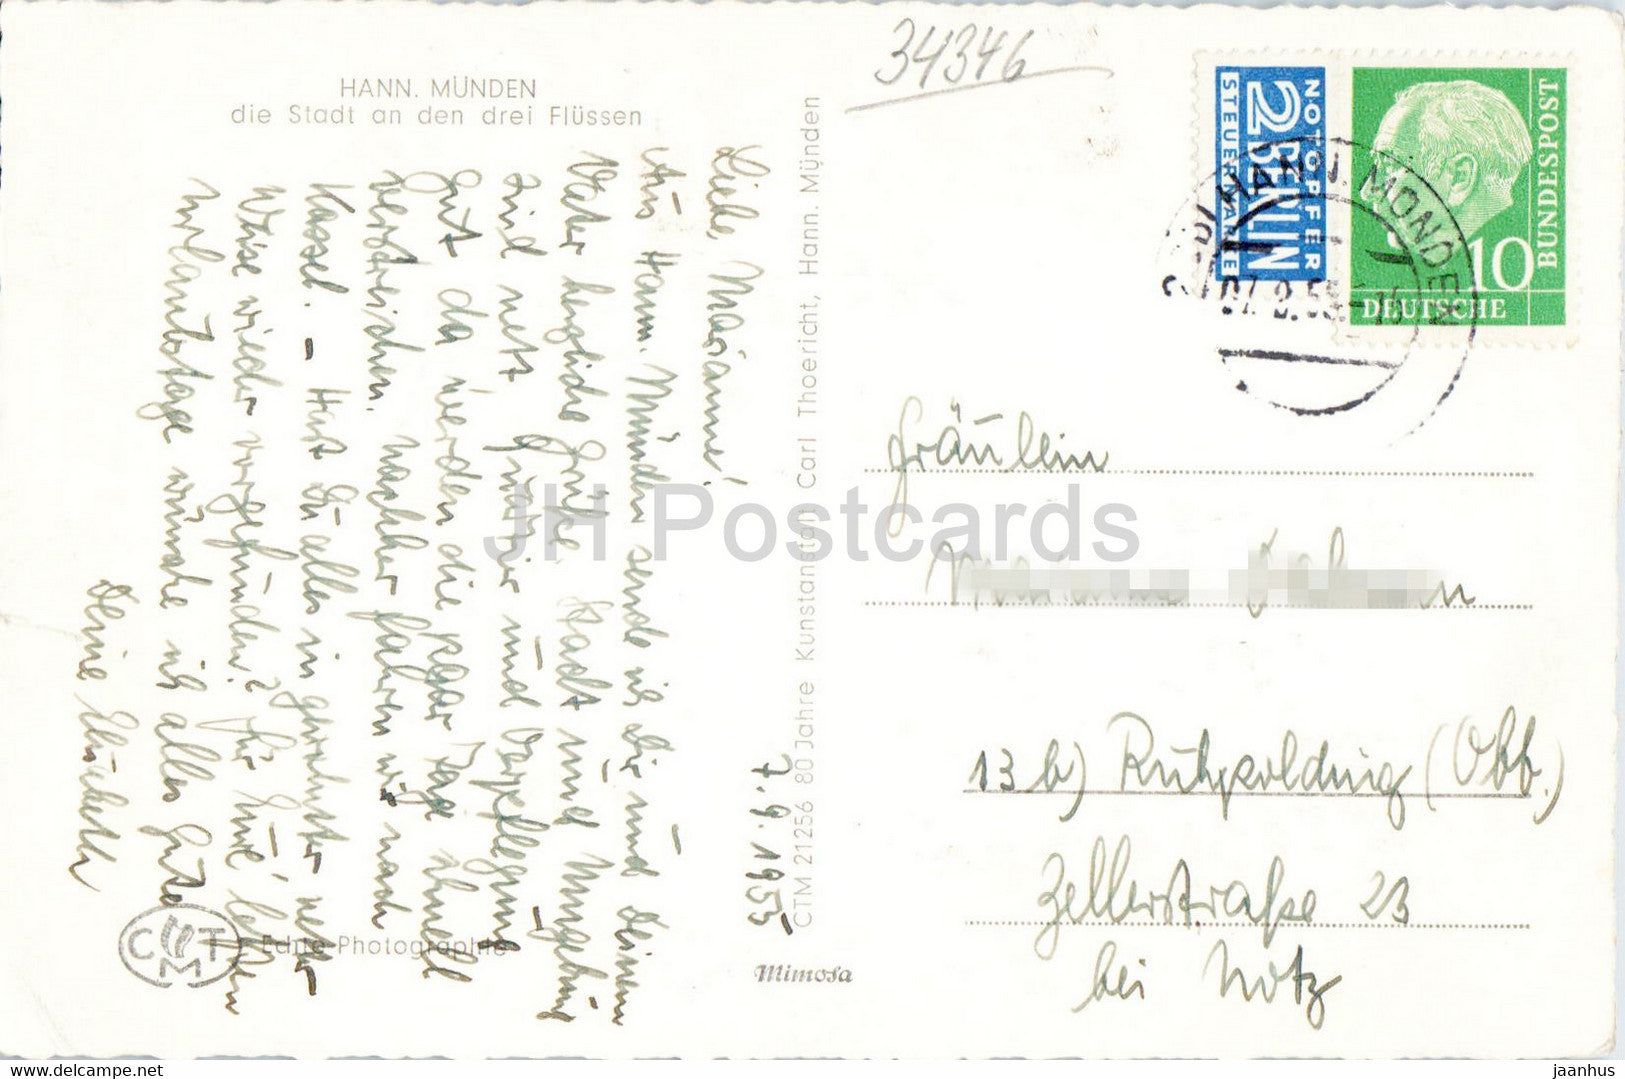 34346
HANN. MÜNDEN
die Stadt an den drei Flüssen
NOTOPFER
2 BERLIN
STEUERMARKE
DEUTSCHE
BUNDESPOST
10
HANN. MÜNDEN
7.9.1955
Liebe Marianne!
Aus Hann. Münden sende ich Dir und Deinem
Vater herzliche Grüße. Stadt und Umgebung
sind nett, Quartier und Verpflegung
gut, da werden die paar Tage schnell
verstreichen. Nachher fahren wir nach
Kassel. – Hast Du alles in gewohnter
Weise wieder vorgefunden? Für Eure letzten
Urlaubstage wünsche ich alles Gute
Deine Elisabeth
CTM 21256 80 Jahre Kunstanstalt Carl Thoericht, Hann. Münden
CTM
Echte Photographie
Mimosa
Fräulein
13b) Ruhpolding (Obb.)
Zellerstraße 23
bei Notz
JH Postcards
jaanhus